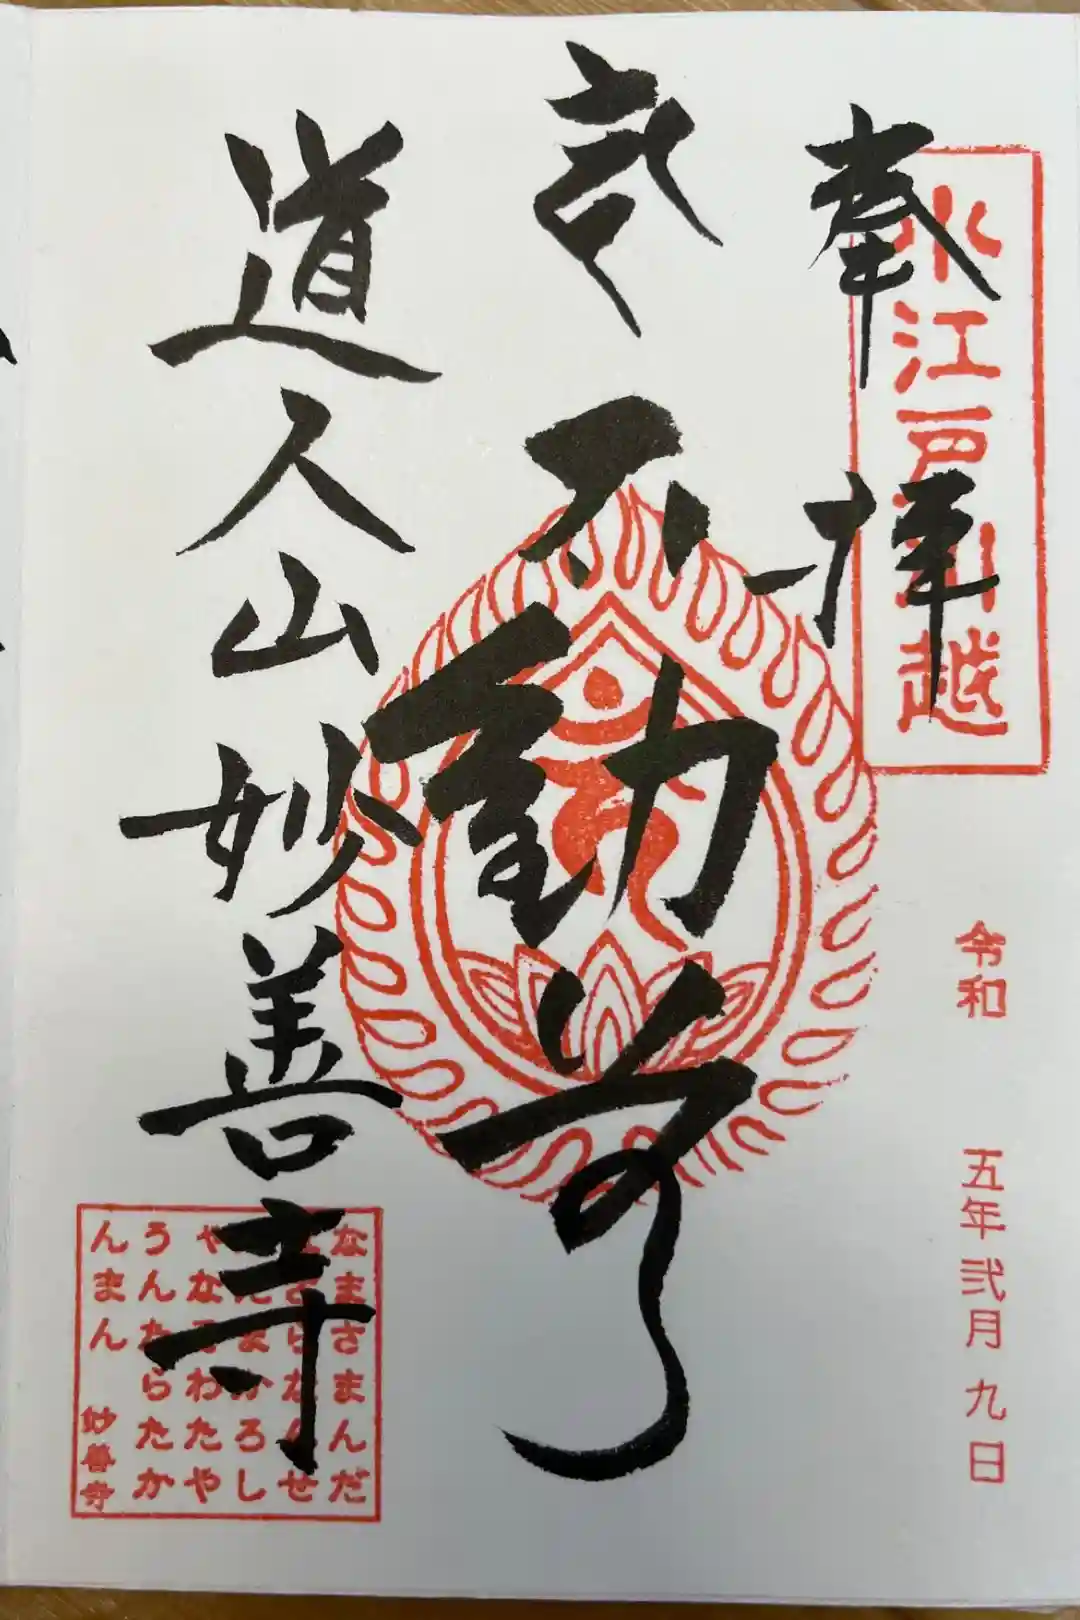 奉拝
小江戸川越
令和 五年 弐月 九日
不動尊
道人山妙善寺
なまさまんだ
ばさらなんせ
んだまかろし
やなそわたや
うんたらたか
んまん 妙善寺